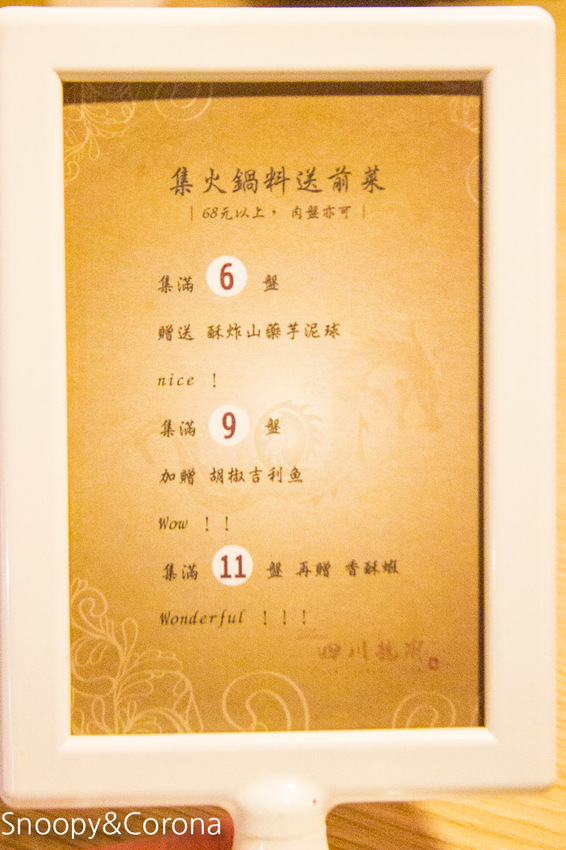 集火鍋料送前菜
| 68元以上， 肉盤亦可 |
集滿 6 盤
贈送 酥炸山藥芋泥球
nice ！
集滿 9 盤
加贈 胡椒吉利魚
Wow ！！
集滿 11 盤 再贈 香酥蝦
Wonderful ！！！
Snoopy&Corona